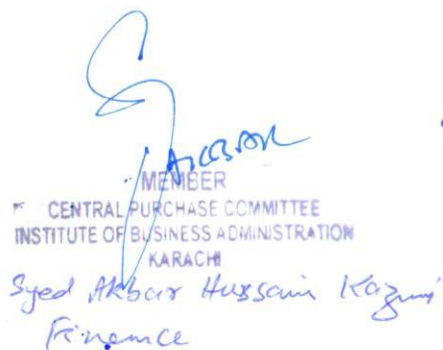 AKBAR
MEMBER
CENTRAL PURCHASE COMMITTEE
INSTITUTE OF BUSINESS ADMINISTRATION
KARACHI
Syed Akbar Hussain Kazmi
Finance